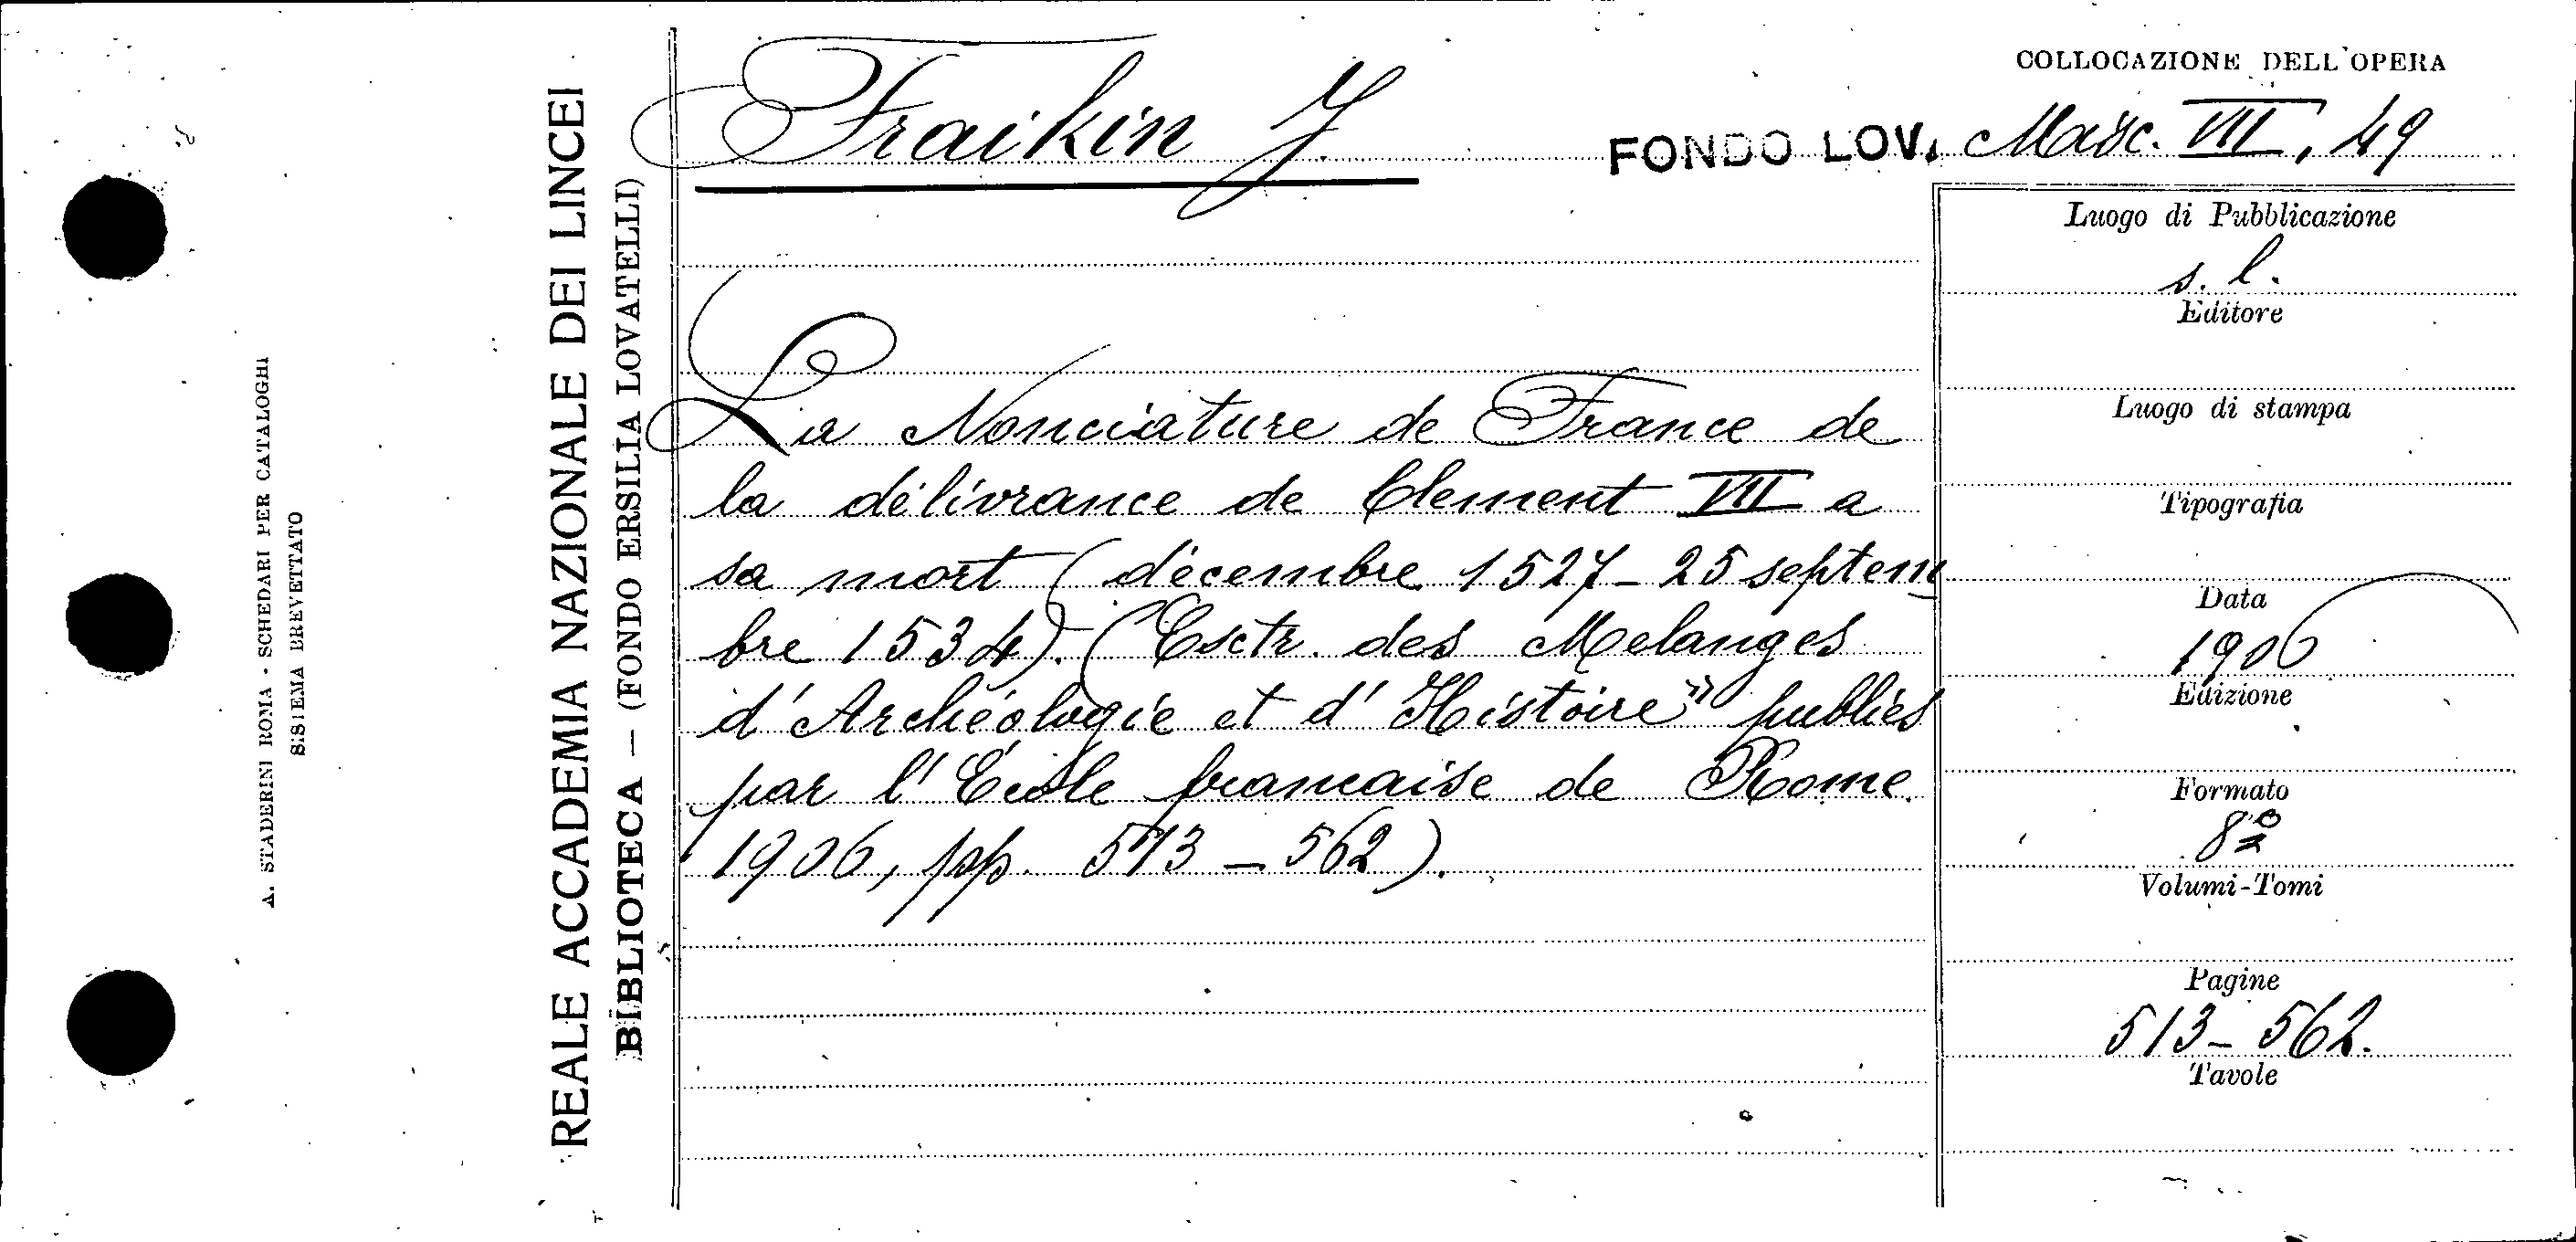 COLLOCAZIONE DELL'OPERA
Fraikin J.
FONDO LOV. Masc. VII, 49
La Nonciature de France de
la délivrance de Clement VII a
sa mort (décembre 1527-25 septem
bre 1534). (Esctr. des Melanges
d'Archéologie et d'Histoire" publiés
par l'École francaise de Rome
1906, pp. 513-562).
Luogo di Pubblicazione
s. l.
Editore
Luogo di stampa
Tipografia
Data
1906
Edizione
Formato
8º
Volumi-Tomi
Pagine
513-562.
Tavole
REALE ACCADEMIA NAZIONALE DEI LINCEI
BIBLIOTECA — (FONDO ERSILIA LOVATELLI)
A. STADERINI ROMA - SCHEDARI PER CATALOGHI
SISTEMA BREVETTATO